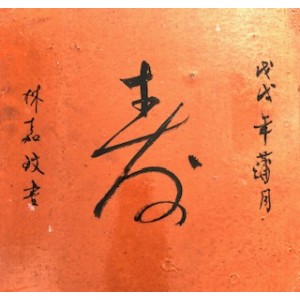 戊戌年蒲月
寿
林嘉敏書